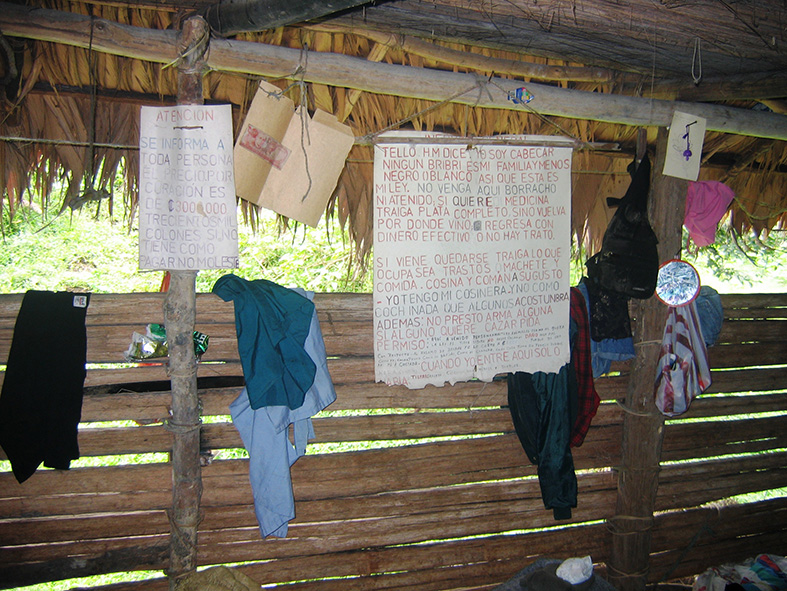 ATENCION
SE INFORMA A
TODA PERSONA
EL PRECIO POR
CURACION ES
DE ₡300.000
TRECIENTOS MIL
COLONES SUNO
TIENE COMO
PAGAR NO MOLESTE
TELLO HM DICE, YO SOY CABECAR
NINGUN BRIBRI ESMI FAMILIA Y MENOS
NEGRO O BLANCO ASI QUE ESTA ES
MI LEY. NO VENGA AQUI BORRACHO
NI ATENIDO, SI QUIERE MEDICINA
TRAIGA PLATA COMPLETO, SINO VUELVA
POR DONDE VINO REGRESA CON
DINERO EFECTIVO O NO HAY TRATO.
SI VIENE QUEDARSE TRAIGA LO QUE
OCUPA SEA TRASTOS, MACHETE Y
COMIDA. COSINA Y COMA NA SUGUSTO
- YO TENGO MI COSINERA. Y NO COMO
COCHINADA QUE ALGUNOS ACOSTUNBRA
ADEMAS: NO PRESTO ARMA ALGUNA
SI ALGUNO QUIERE CAZAR PIDA
PERMISO:
CUANDO YO ENTRE AQUI SOLO